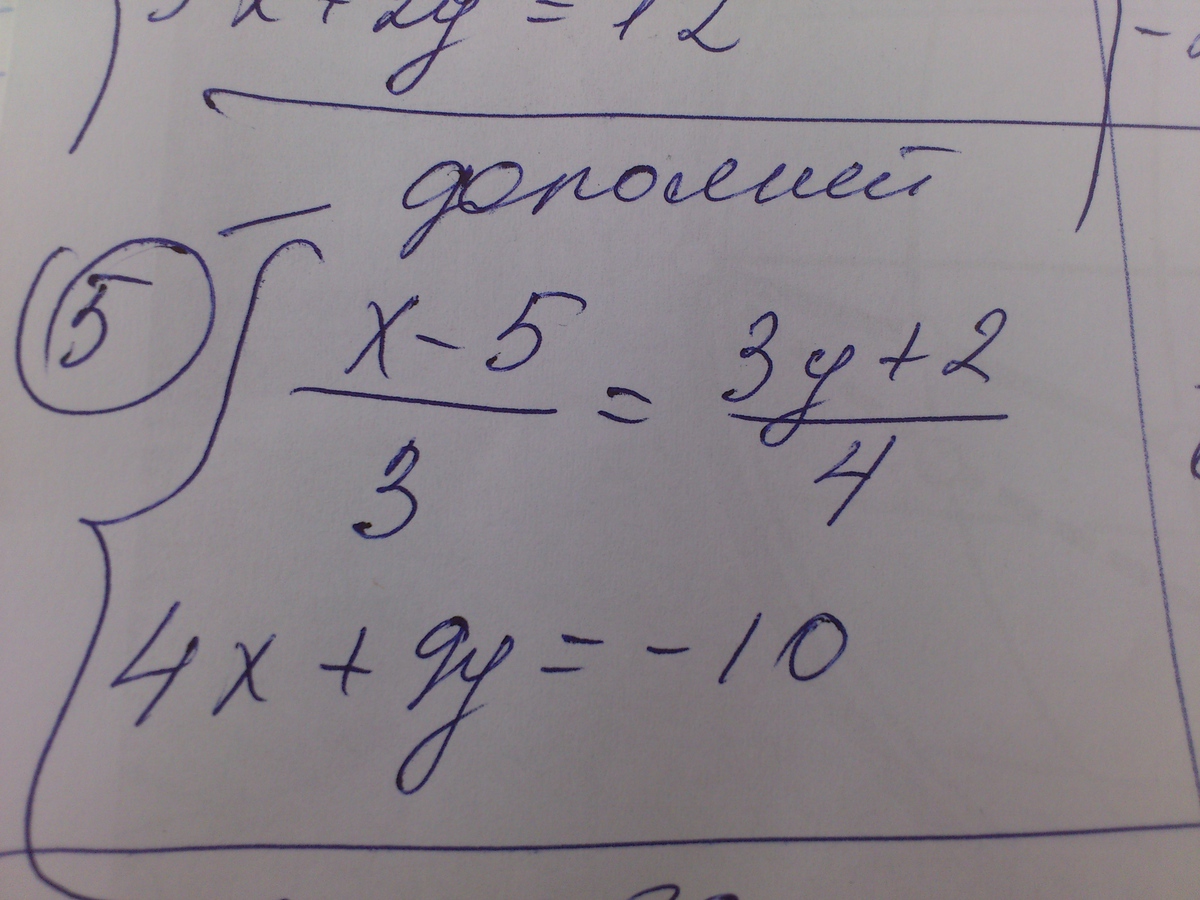 x + 2y = 12
дополнит
5
x - 5 / 3 = 3y + 2 / 4
4x + 9y = -10